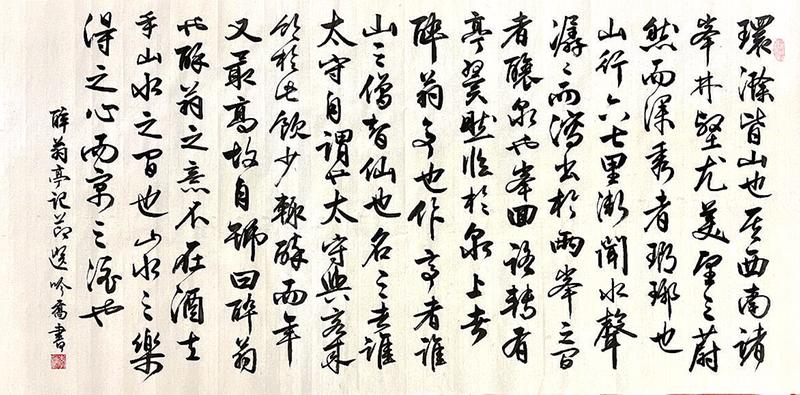 環滁皆山也其西南諸
峯林壑尤美望之蔚
然而深秀者瑯琊也
山行六七里漸聞水聲
潺々而瀉出於兩峯之間
者釀泉也峯回路轉有
亭翼然臨於泉上者
醉翁亭也作亭者誰
山之僧智仙也名之者誰
太守自謂也太守與客來
飲於此飲少輒醉而年
又最高故自號曰醉翁
也醉翁之意不在酒在
乎山水之間也山水之樂
得之心而寓之酒也
醉翁亭記節選吟喬書